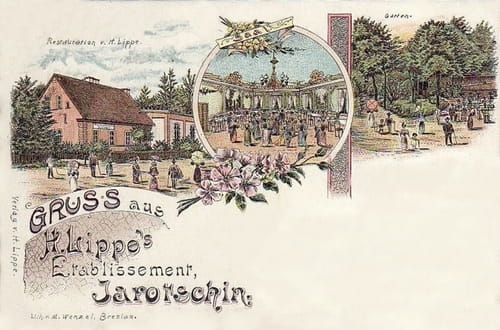 Restauration v. H. Lippe.
Saal.
Garten.
Gruss aus
H. Lippe's
Etablissement,
Jarotschin.
Verlag v. H. Lippe.
Lith. v. M. Wenzel, Breslau.